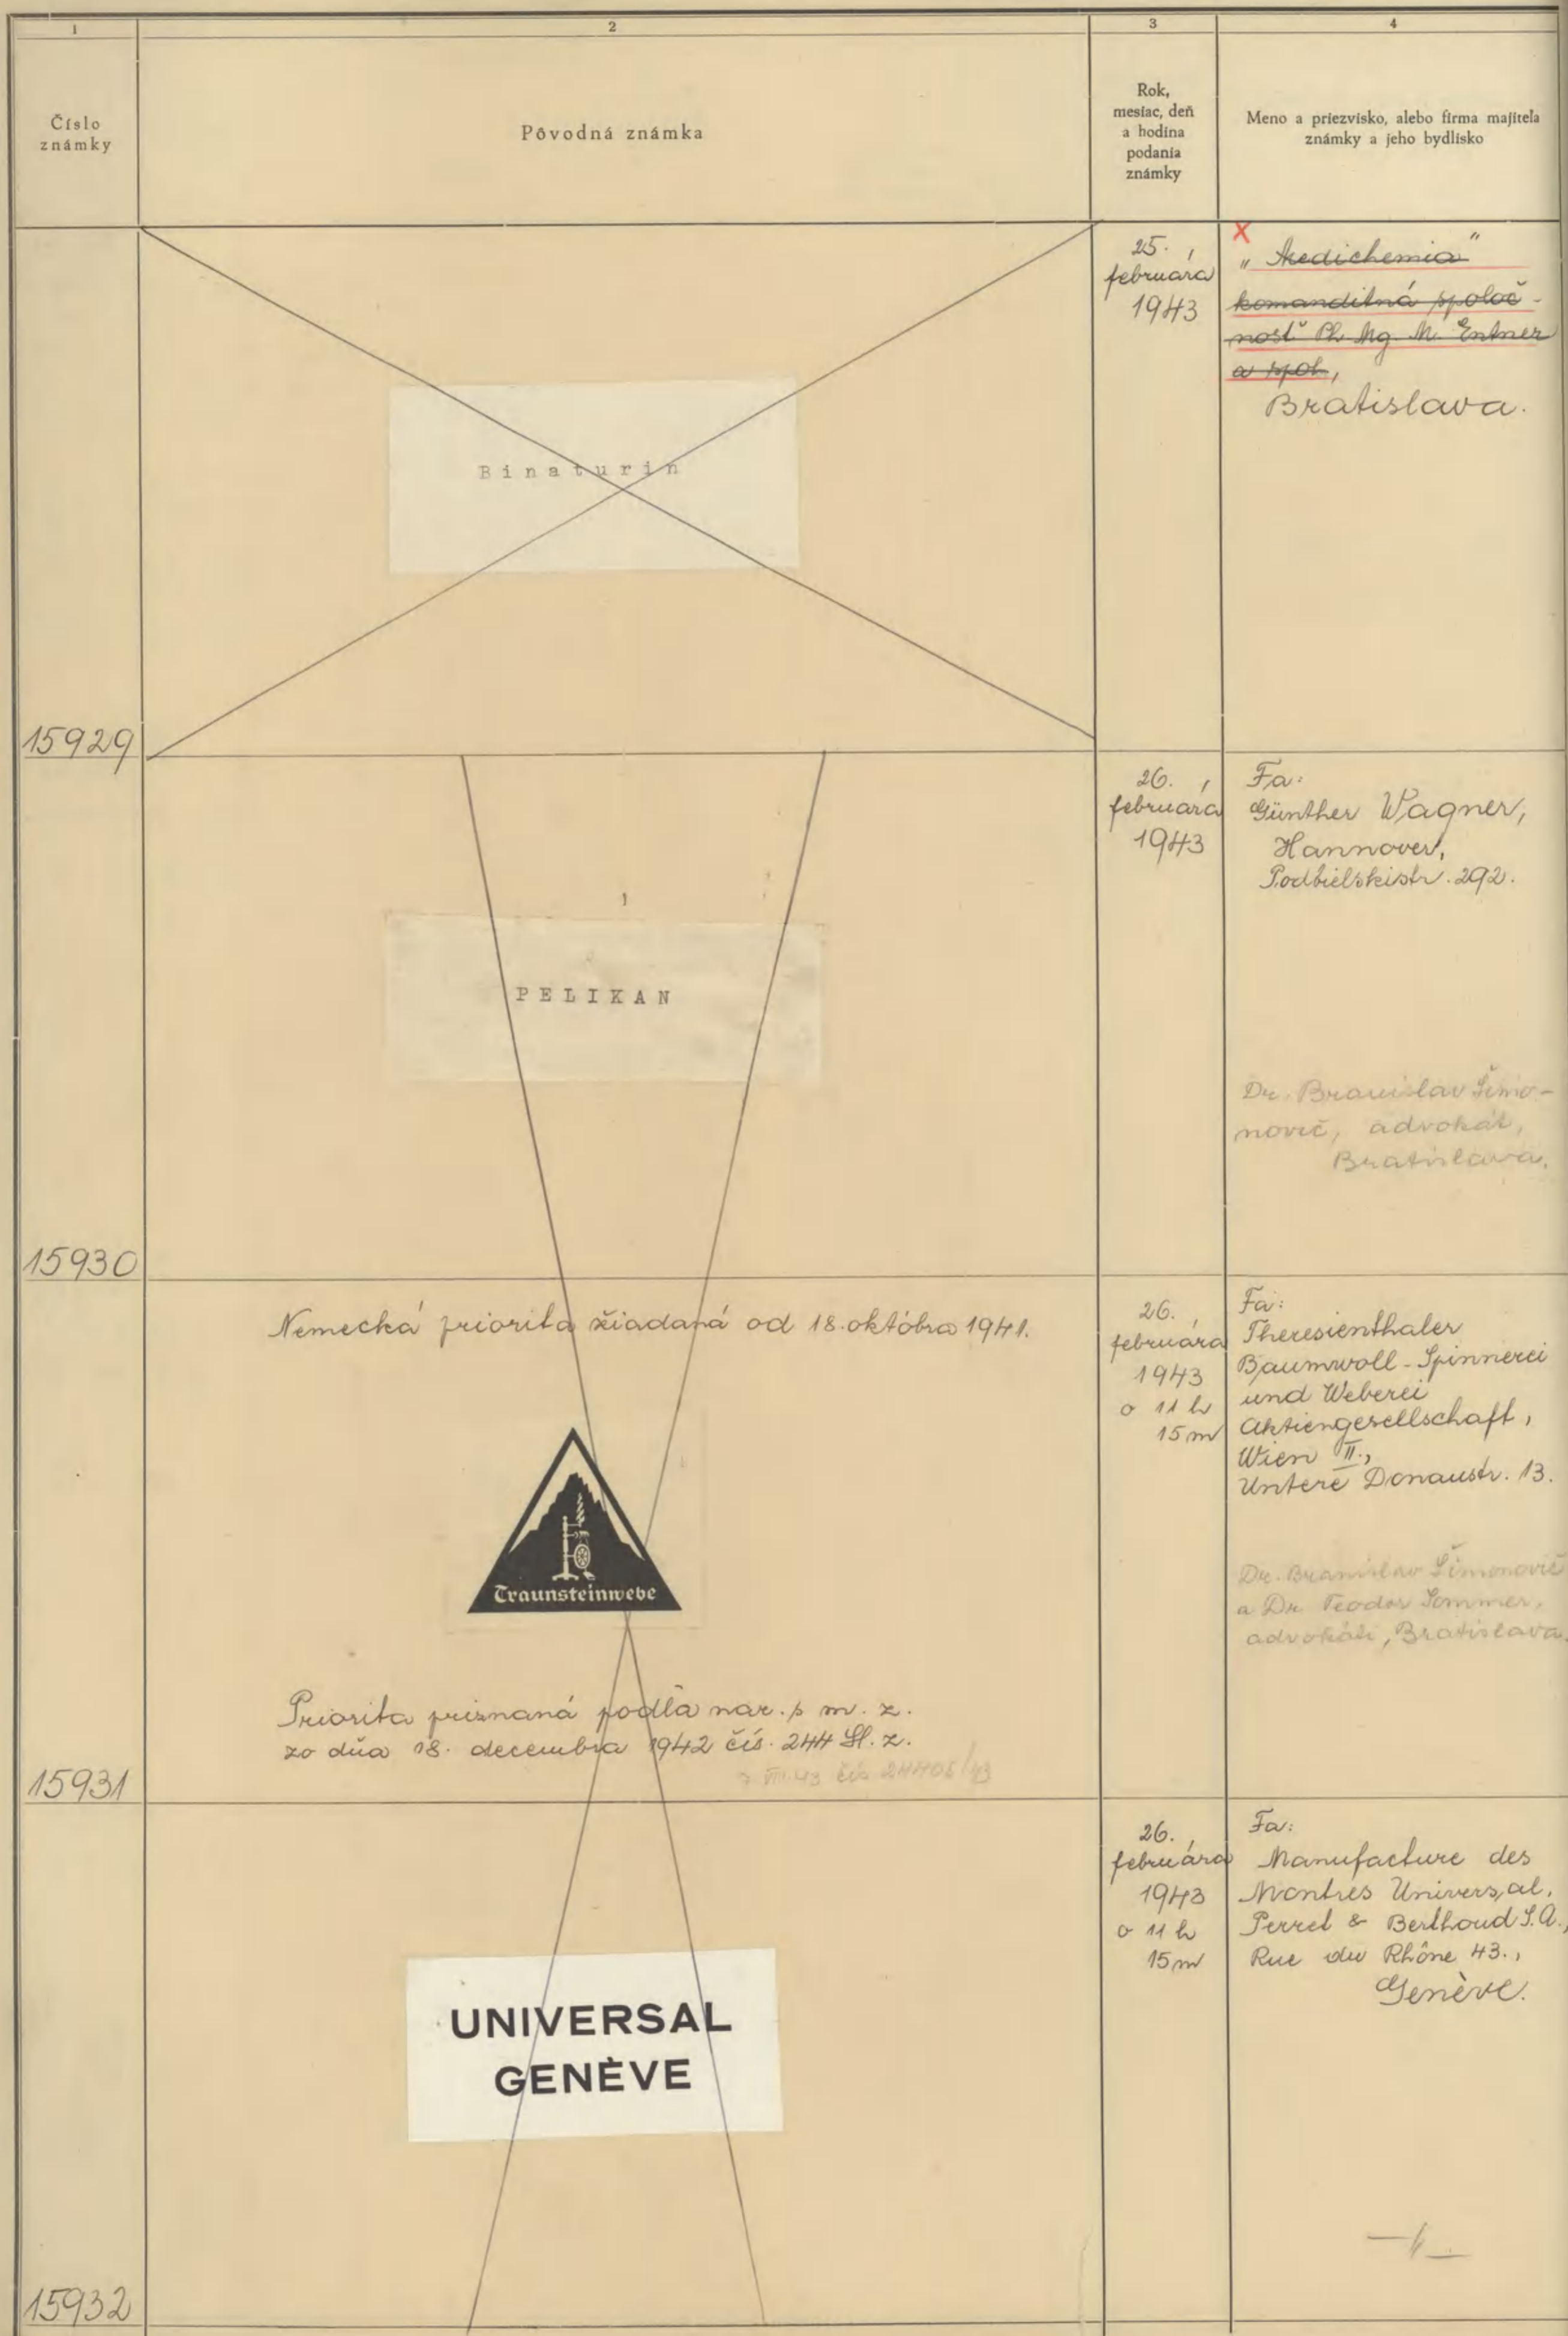 1
2
3
4
Číslo
známky
Pôvodná známka
Rok,
mesiac, deň
a hodina
podania
známky
Meno a priezvisko, alebo firma majiteľa
známky a jeho bydlisko
15929
Binaturin
25.
februára
1943
X
„Medichemia"
komanditná spoloč-
nosť Ph. Mg. M. Entner
a spol.,
Bratislava.
15930
PELIKAN
26.
februára
1943
Fa:
Günther Wagner,
Hannover,
Podbielskistr. 292.
Dr. Branislav Šimo-
novič, advokát,
Bratislava.
15931
Nemecká priorita žiadaná od 18. októbra 1941.
Traunsteinwebe
Priorita priznaná podľa nar. s m. z.
zo dňa 18. decembra 1942 čís. 244 Sl. z.
VIII.43 čís 24405/43
26.
februára
1943
o 11 h
15 m
Fa:
Theresienthaler
Baumwoll-Spinnerei
und Weberei
Aktiengesellschaft,
Wien II.,
Untere Donaustr. 13.
Dr. Branislav Šimonovič
a Dr. Teodor Sommer,
advokáti, Bratislava.
15932
UNIVERSAL
GENÈVE
26.
februára
1943
o 11 h
15 m
Fa:
Manufacture des
Montres Universal,
Perret & Berthoud S.A.,
Rue du Rhône 43.,
Genève.
—"—